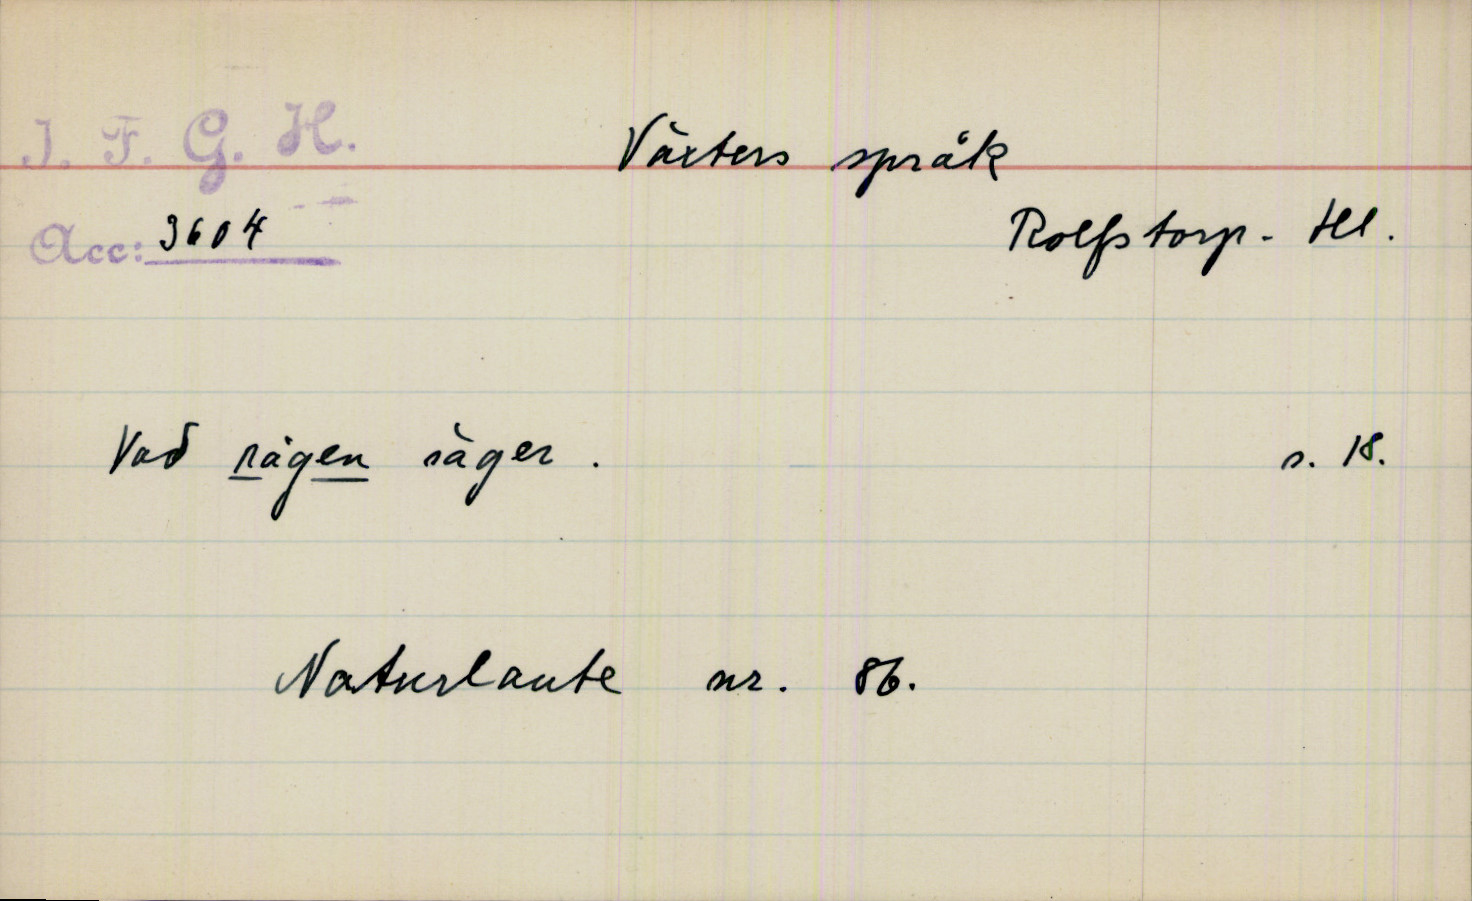 I. F. G. H.
Växters språk
Acc: 3604
Rolfstorp - Hl.
Vad rågen säger. s. 18.
Naturlaute nr. 86.